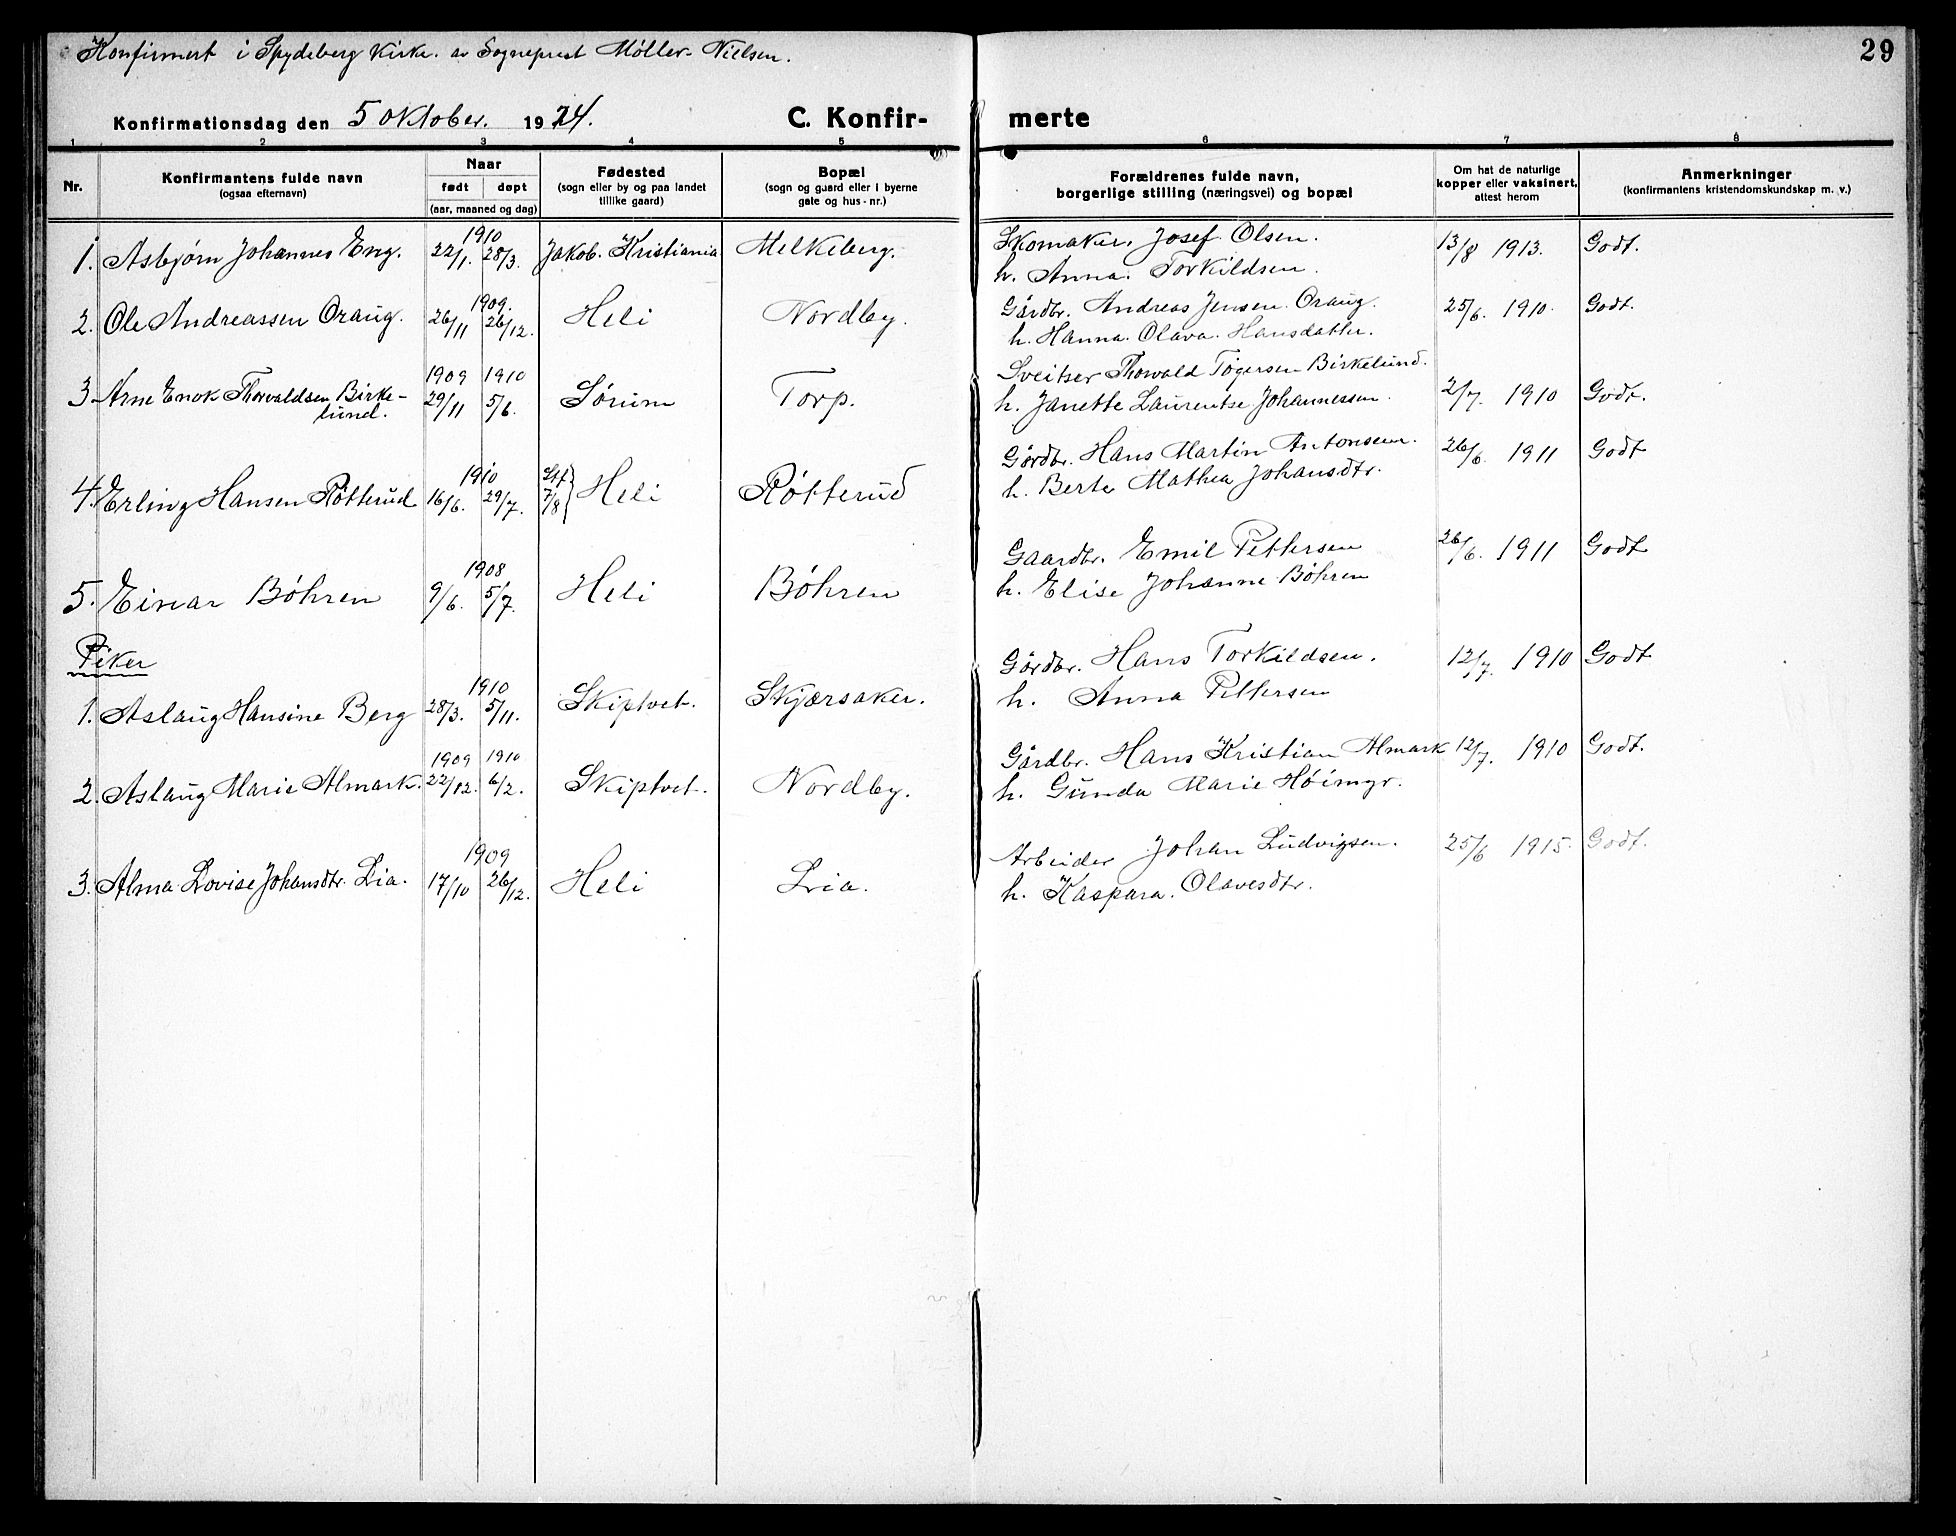 Konfirmert i Spydeberg Kirke. av Sogneprest Møller-Nielsen.
29
Konfirmationsdag den 5 oktober. 1924. C. Konfir- merte
1 2 3 4 5 6 7 8
Nr. Konfirmantens fulde navn (ogsaa efternavn) Naar født døpt (aar, maaned og dag) Fødested (sogn eller by og paa landet tillike gaard) Bopæl (sogn og guard eller i byerne gate og hus-nr.) Forældrenes fulde navn, borgerlige stilling (næringsvei) og bopæl Om hat de naturlige kopper eller vaksinert, attest herom Anmerkninger (konfirmantens kristendomskundskap m. v.)
1. Asbjørn Johannes Eng. 1910 22/1. 28/3. Jakob. Kristiania Melkeberg. Skomaker. Josef Olsen. 13/8 1913. Godt.
h. Anna. Torkildsen.
2. Ole Andreassen Oraug. 1909. 26/11 26/12. Heli Nordby. Gårdbr. Andreas Jensen Oraug. 25/6. 1910. Godt.
h. Hanna. Olava. Hansdatter.
3 Arne Enok Thorvaldsen Birke- 1909 29/11 1910 5/6. Sørum Torp. Sveitser Thorvald Tøgersen Birkelund. 2/7. 1910 Godt.
lund. h. Janette Laurentse Johannessen.
4. Erling Hansen Røtterud 1910 16/6. 29/7. Stf. 7/8 } Heli Røtterud Gårdbr. Hans Martin Antonsen. 26/6 1911 Godt
h. Berte Mathea Johansdtr.
5. Einar Bøhren 1908 9/6. 5/7. Heli Bøhren Gaardbr. Emil Pettersen 26/6. 1911 Godt
h. Elise Johanne Bøhren
Piker
1. Aslaug Hansine Berg 1910 28/3. 5/11. Skiptvet. Skjærsaker. Gårdbr. Hans Torkildsen. 12/7. 1910 Godt
h. Anna Pettersen
2. Aslaug Marie Almark. 1909 22/12. 1910 6/2. Skiptvet. Nordby. Gårdbr. Hans Kristian Almark 12/7. 1910 Godt.
h. Gunda Marie Høimyr.
3. Alma Lovise Johansdtr. Lia. 1909 17/10 26/12. Heli Lia. Arbeider Johan Ludvigsen. 25/6 1915. Godt.
h. Kaspara. Olavesdtr.